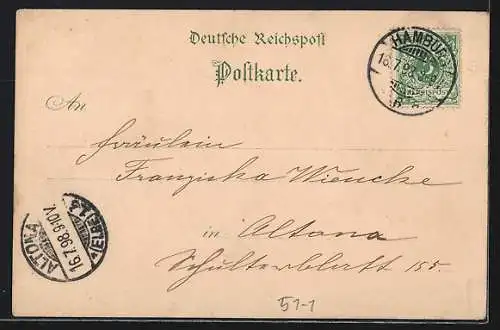 Deutsche Reichspost
Postkarte.
An
Fräulein
Franziska Wiencke
in Altona
Schulterblatt 155.
HAMBURG
16.7.98
ALTONA
16.7.98.9-10V.
(ELBE)
51-1